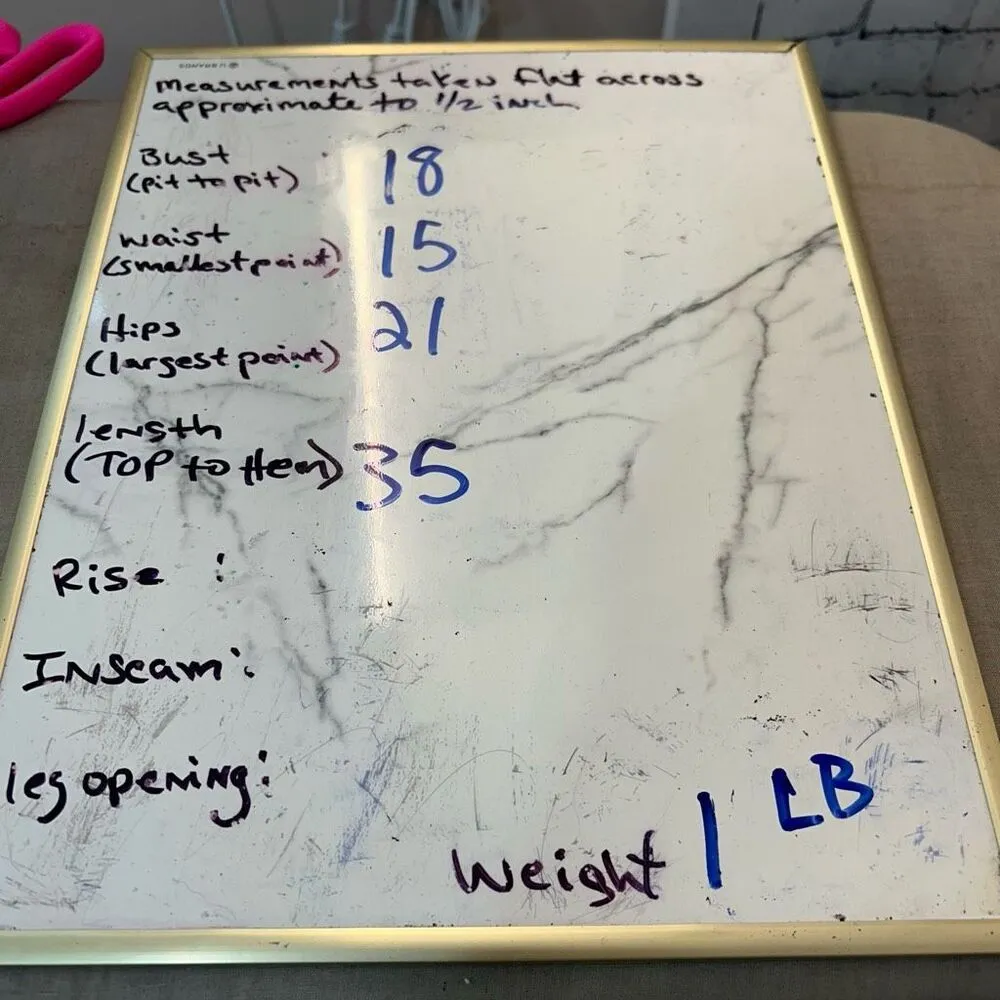 measurements taken flat across
approximate to 1/2 inch
Bust 18
(pit to pit)
waist 15
(smallest point)
Hips 21
(largest point)
length
(TOP to Hem) 35
Rise :
Inseam:
leg opening:
Weight 1 LB